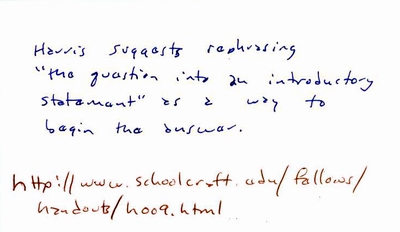 Harris suggests rephrasing
"the question into an introductory
statement" as a way to
begin the answer.
http://www.schoolcraft.edu/fallows/
handouts/h009.html